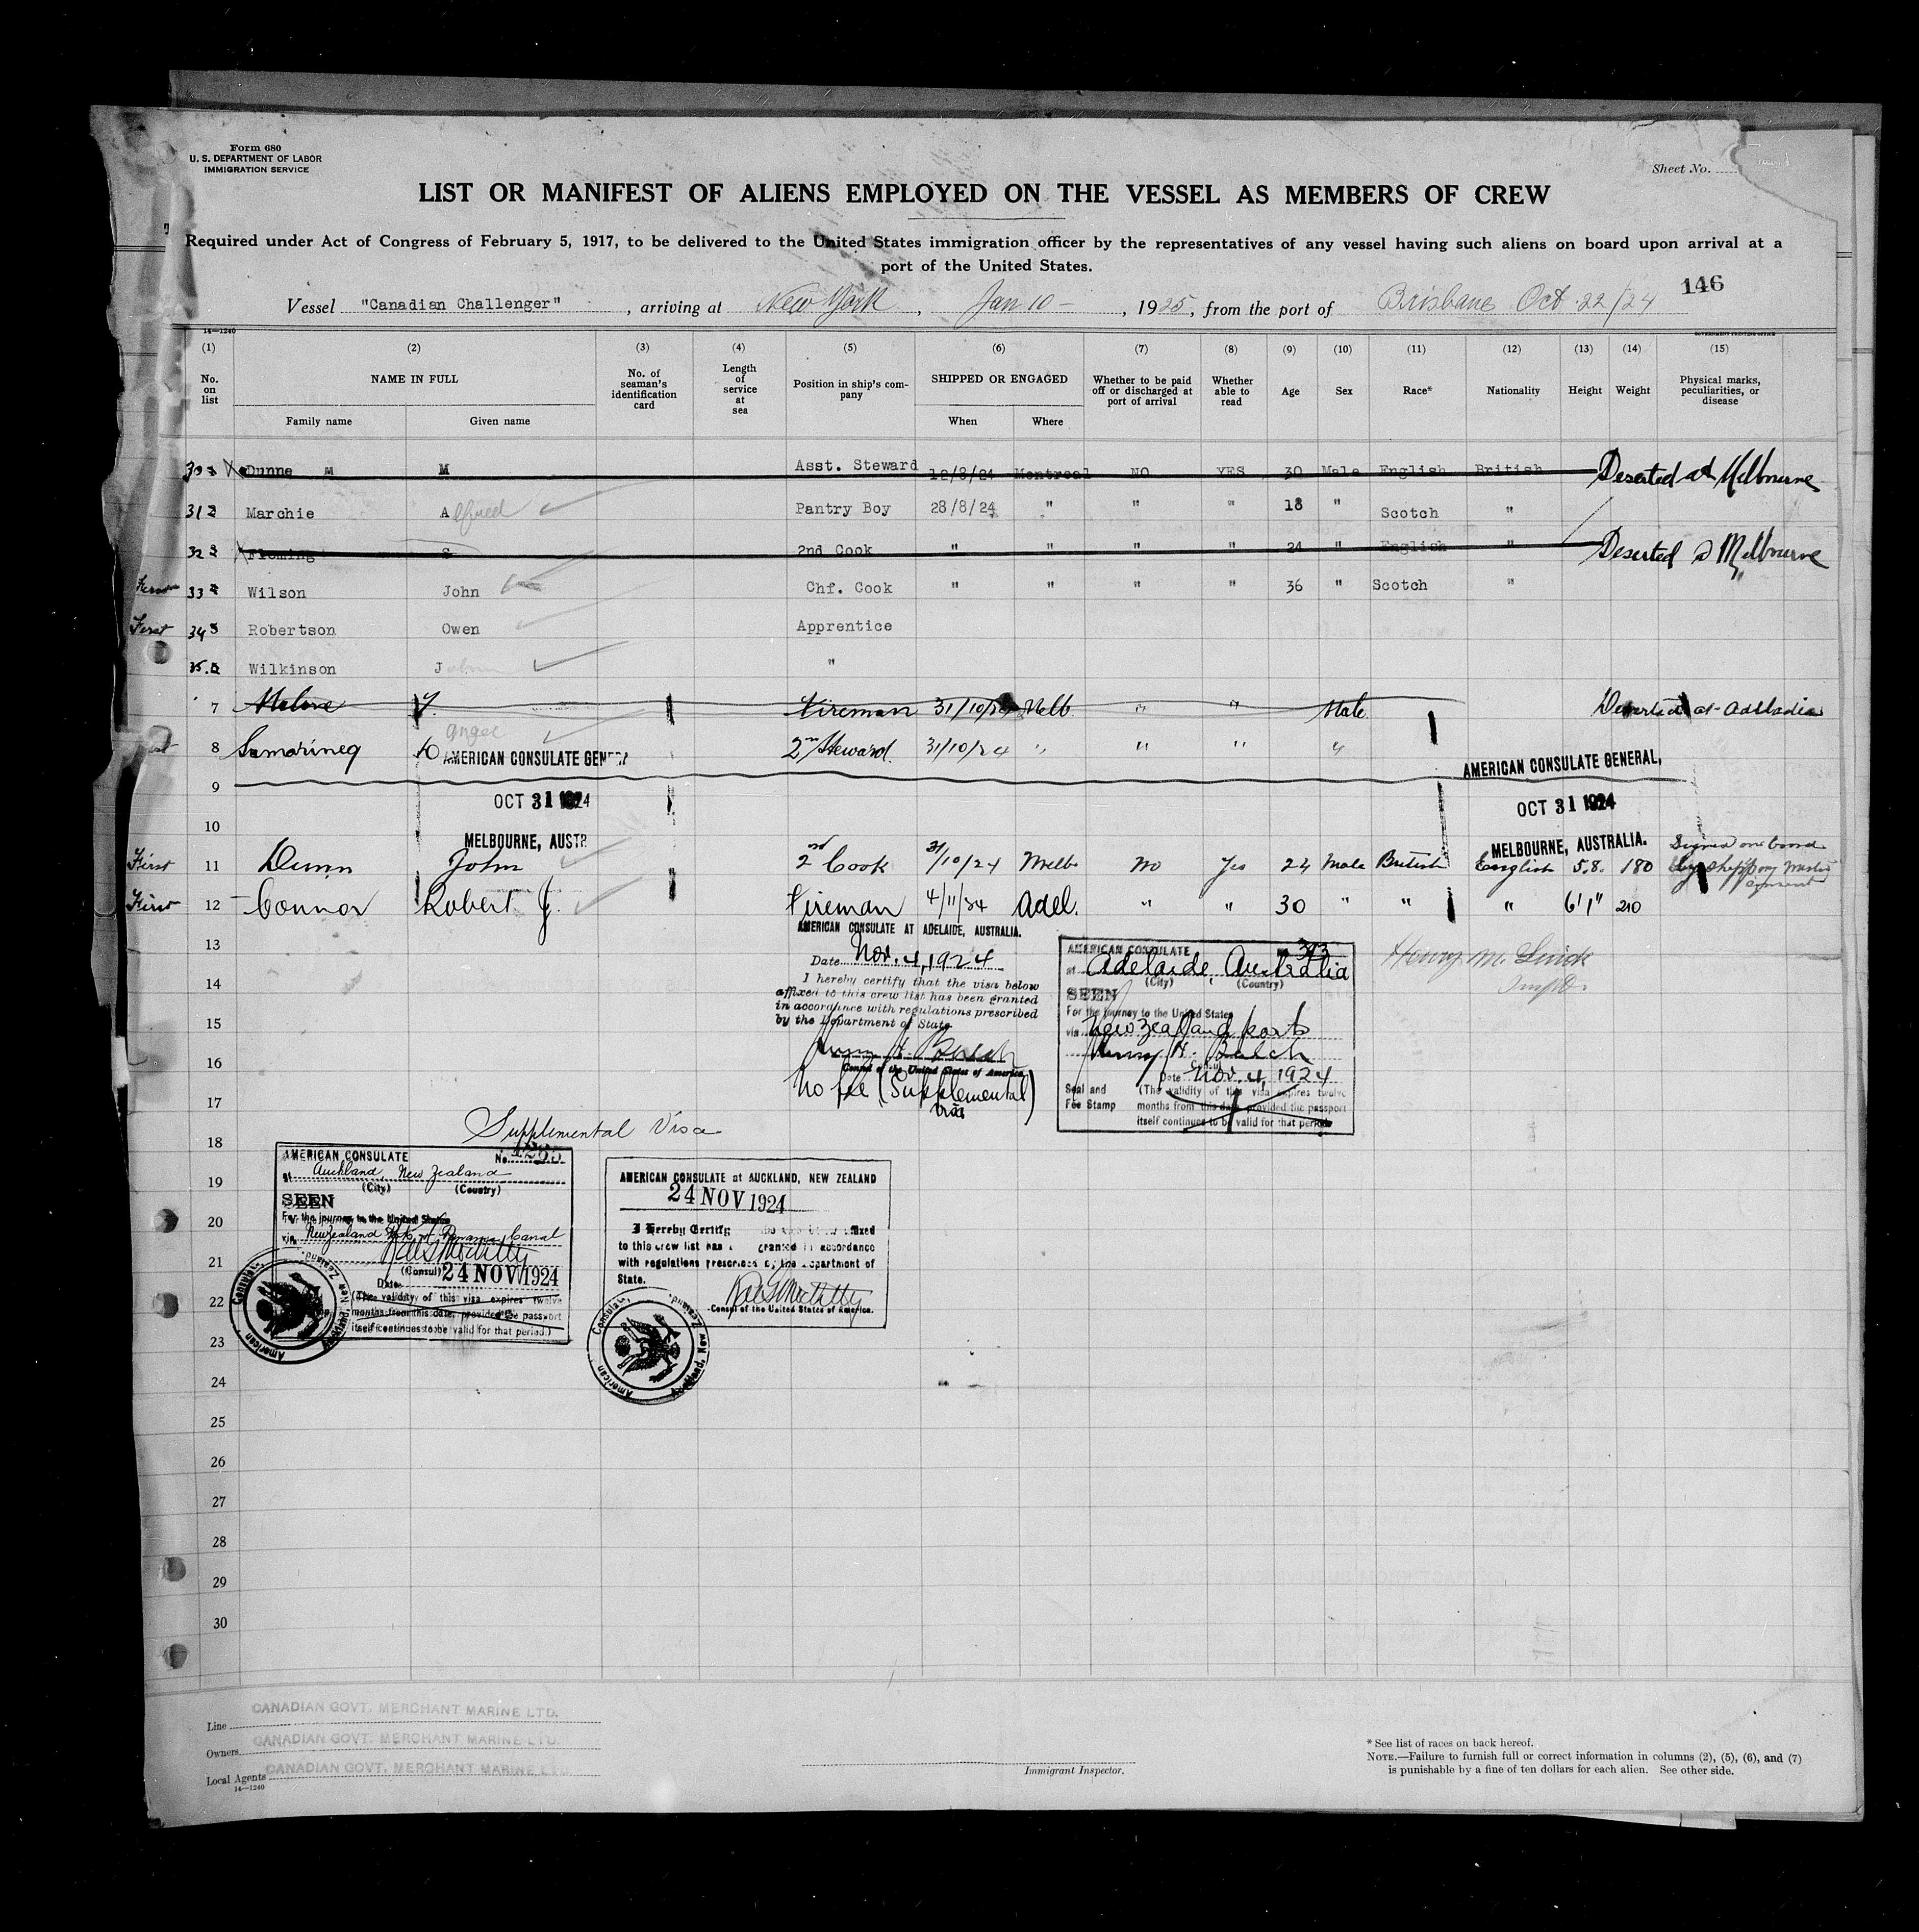 Form 680
U. S. DEPARTMENT OF LABOR
IMMIGRATION SERVICE
Sheet No.
LIST OR MANIFEST OF ALIENS EMPLOYED ON THE VESSEL AS MEMBERS OF CREW
Required under Act of Congress of February 5, 1917, to be delivered to the United States immigration officer by the representatives of any vessel having such aliens on board upon arrival at a
port of the United States.
146
Vessel "Canadian Challenger", arriving at New York, Jan 10 - , 1925, from the port of Brisbane Oct. 22/24
14—1240 GOVERNMENT PRINTING OFFICE
(1) (2) (3) (4) (5) (6) (7) (8) (9) (10) (11) (12) (13) (14) (15)
No. on list NAME IN FULL No. of seaman's identification card Length of service at sea Position in ship's company SHIPPED OR ENGAGED Whether to be paid off or discharged at port of arrival Whether able to read Age Sex Race* Nationality Height Weight Physical marks, peculiarities, or disease
Family name Given name When Where
30 Dunne M M Asst. Steward 12/8/24 Montreal NO YES 30 Male English British Deserted at Melbourne
31 Marchie Alfred Pantry Boy 28/8/24 " " " 18 " Scotch "
32 Fleming S 2nd Cook " " " " 24 " English " Deserted @ Melbourne
33 Wilson John Chf. Cook " " " " 36 " Scotch "
First 34 Robertson Owen Apprentice
35 Wilkinson John "
7 Malone Y. Fireman 31/10/24 Melb " " Male Deserted at Adeladia
8 Samarineq Angel 2nd Steward 31/10/24 " " " "
AMERICAN CONSULATE GENERAL
AMERICAN CONSULATE GENERAL,
9
OCT 31 1924
OCT 31 1924
10
MELBOURNE, AUSTR
MELBOURNE, AUSTRALIA.
First 11 Dunn John 2nd Cook 31/10/24 Melb No Yes 24 Male British English 5.8. 180 Signed on board
First 12 Connor Robert J. Fireman 4/11/24 Adel. " " 30 " " " 6'1" 210
AMERICAN CONSULATE AT ADELAIDE, AUSTRALIA.
Date Nov. 4, 1924
I hereby certify that the visa below
affixed to this crew list has been granted
in accordance with regulations prescribed
by the Department of State
Henry H. Balch
Consul of the United States of America
No fee (Supplemental)
visa
AMERICAN CONSULATE No. 393
at Adelaide, Australia
(City) (Country)
SEEN
For the journey to the United States
via New Zealand ports
Henry H. Balch
Consul
Date Nov. 4, 1924
Seal and Fee Stamp
(The validity of this visa expires twelve
months from this date provided the passport
itself continues to be valid for that period.
Henry M.
13
14
15
16
17
18
19
20
21
22
23
24
25
26
27
28
29
30
Supplemental Visa
AMERICAN CONSULATE No.
at Auckland, New Zealand
(City) (Country)
SEEN
For the journey to the United States
via New Zealand Ports & Panama Canal
(Consul)
Date 24 NOV 1924
(The validity of this visa expires twelve
months from this date, provided the passport
itself continues to be valid for that period.)
American Consulate, Auckland, New Zealand.
AMERICAN CONSULATE at AUCKLAND, NEW ZEALAND
24 NOV 1924
I Hereby Certify affixed
to this crew list has granted in accordance
with regulations prescribed by the Department of
State.
Consul of the United States of America.
American Consulate, Auckland, New Zealand.
Line CANADIAN GOVT. MERCHANT MARINE LTD.
Owners CANADIAN GOVT. MERCHANT MARINE LTD.
Local Agents CANADIAN GOVT. MERCHANT MARINE LTD.
14—1240
Immigrant Inspector.
* See list of races on back hereof.
NOTE.—Failure to furnish full or correct information in columns (2), (5), (6), and (7)
is punishable by a fine of ten dollars for each alien. See other side.